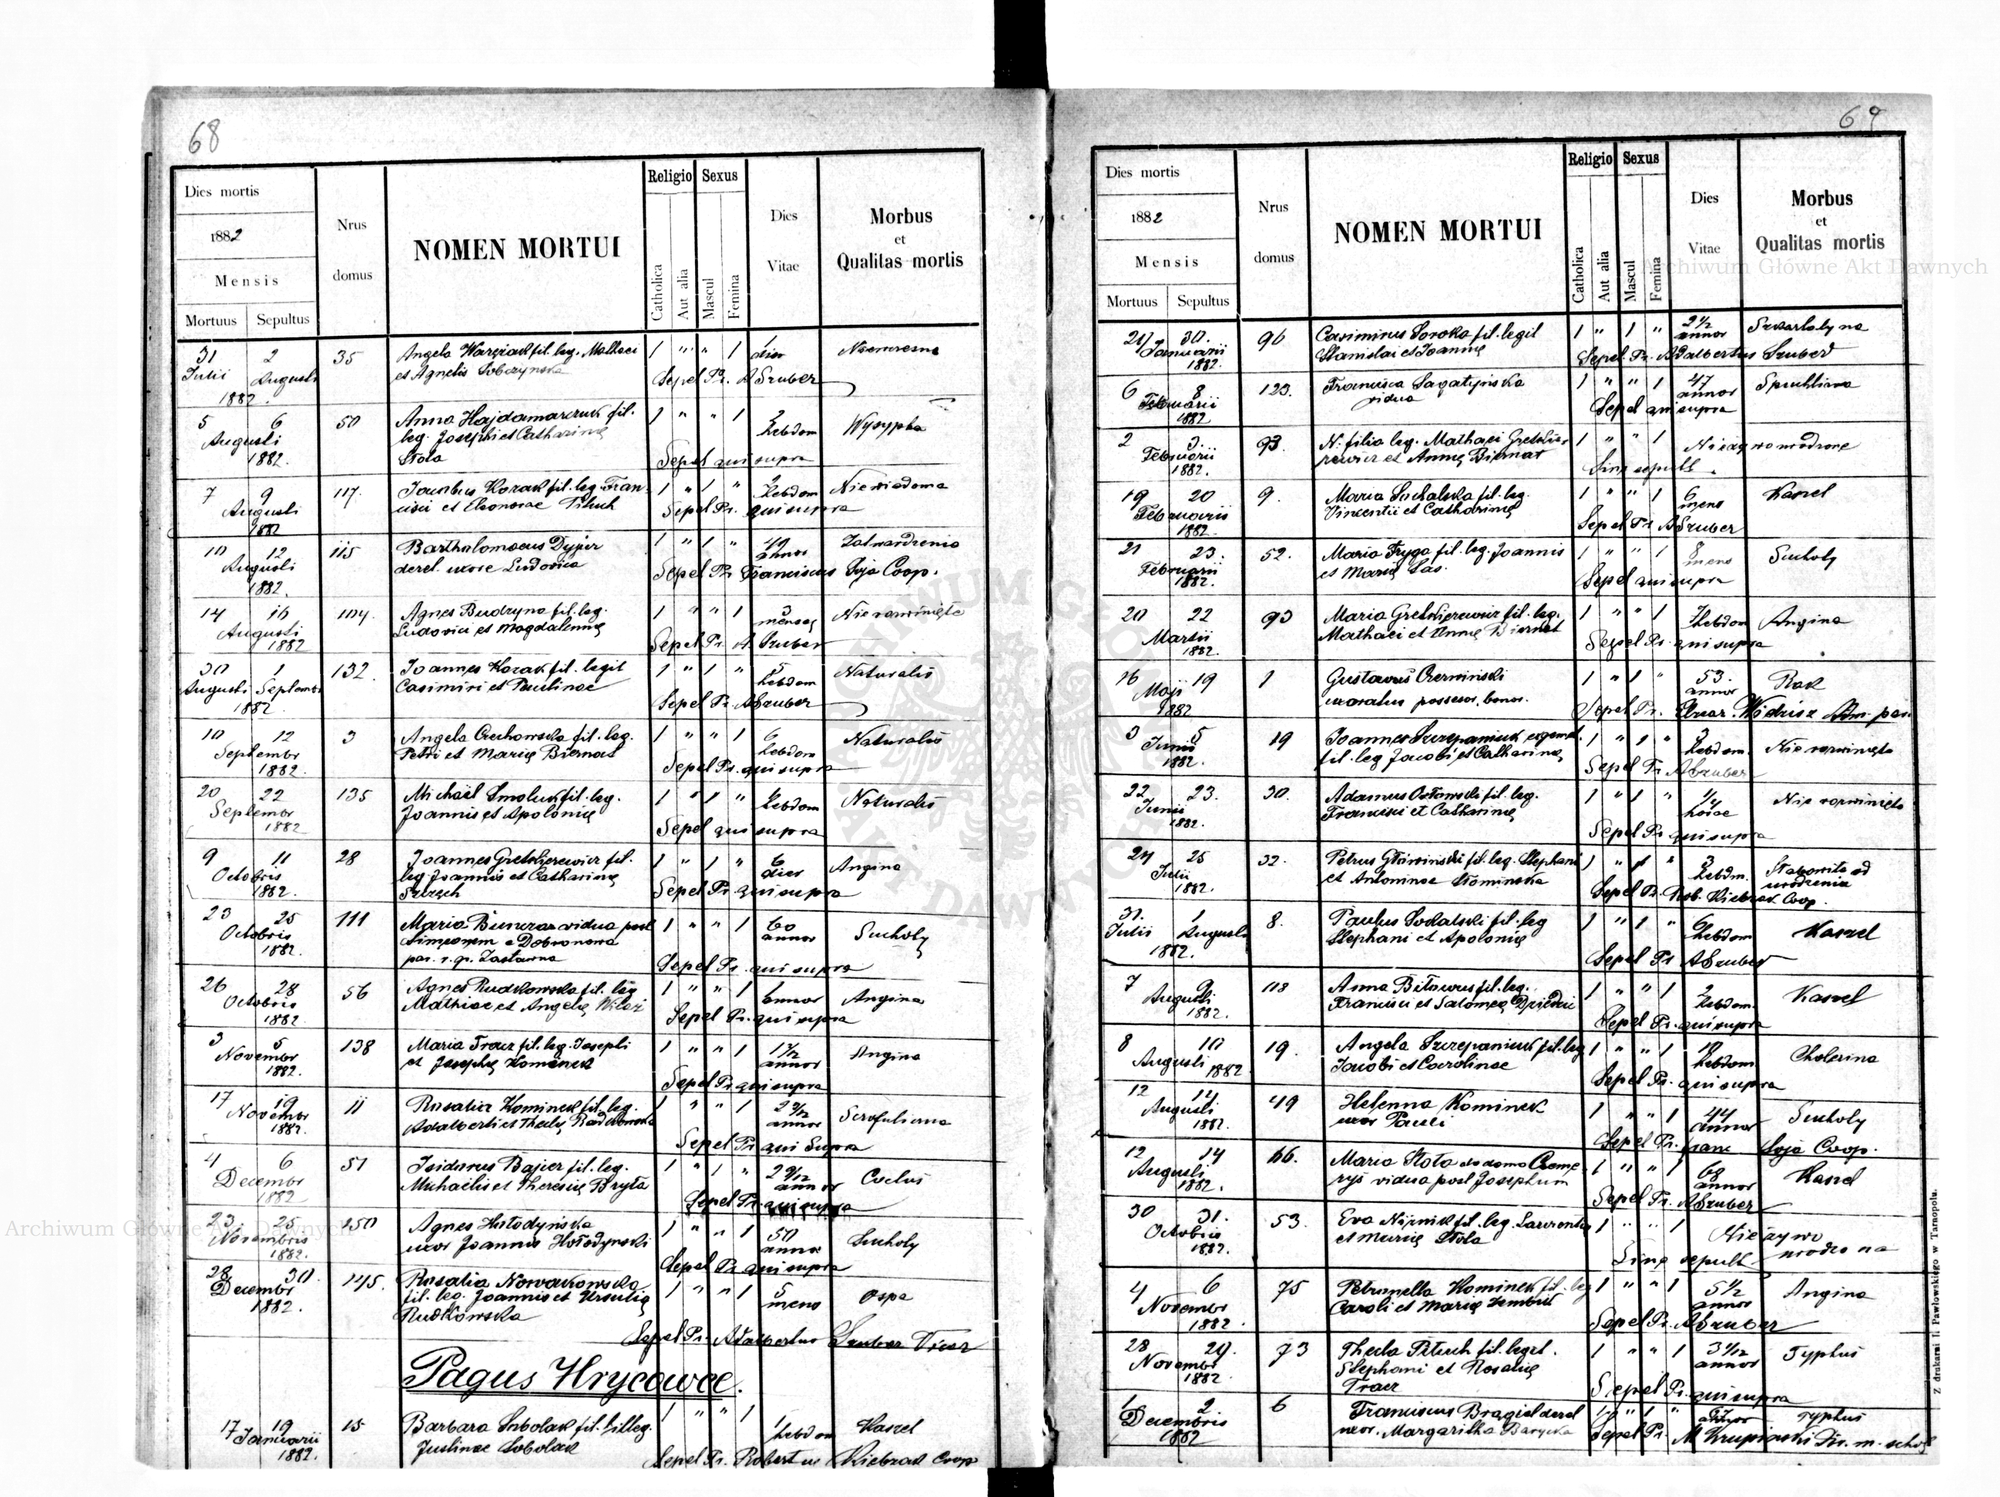 68
Dies mortis
1882
Mensis
Mortuus Sepultus
Nrus domus
NOMEN MORTUI
Religio
Catholica
Aut alia
Sexus
Mascul
Femina
Dies Vitae
Morbus
et
Qualitas mortis
31 2 35 Angela fil. leg. Mathaei 1 " " 1 1
Julii Augusti et Agnetis Sobczyńska
1882. Sepel Pr. A Szuber
5 6 50 Anna Hajdamarczuk fil. 1 " " 1 2 hebdom Wysypka
Augusti leg. Josephi et Catharinę
1882. Stola Sepel qui supra
7 9 117. Jacobus Kozak fil. leg. Fran- 1 " 1 " 2 hebdom Niewiadoma
Augusti cisci et Eleonorae Pituch Sepel Pr. qui supra
1882
10 12 115 Bartholomaeus Dyjur 1 " 1 " 49 annor Zatwardzenie
Augusti derel. uxore Ludovica Sepel Pr Franciscus Soja Coop.
1882.
14 16 104. Agnes Budzyna fil. leg. 1 " " 1 3 menses Nierozwinięte
Augusti Ludovici et Magdalenę
1882 Sepel Pr. A. Szuber
30 1 132. Joannes Kozak fil. legit 1 " 1 " 5 hebdom Naturalis
Augusti Septembr Casimiri et Paulinae
1882 Sepel Pr. A Szuber
10 12 3 Angela Czechowska fil. leg. 1 " " 1 6 hebdom Naturalis
Septembr Petri et Marię Biernat
1882. Sepel Pr. qui supra
20 22 135 Michaël Smoluk fil. leg. 1 " 1 " hebdom Naturalis
Septembr Joannis et Apolonię
1882 Sepel qui supra
9 11 28 Joannes Gretkierewicz fil. 1 " 1 " 6 dies Angina
Octobris leg. Joannis et Catharinę
1882. Sepel Pr. qui supra
23 25 111 Maria vidua post 1 " " 1 60 annor Suchoty
Octobris Simeonem e Dobrowoda
1882. par. r. gr. Zastawna Sepel Pr. qui supra
26 28 56 Agnes Rudkowska fil. leg 1 " " 1 1 annor Angina
Octobris Mathiae et Angelę
1882. Sepel Pr. qui supra
3 5 138 Maria Tracz fil. leg. Josephi 1 " " 1 1 1/12 annor Angina
Novembr et Josephę Kominek
1882. Sepel Pr. qui supra
17 19 11 Rosalia Kominek fil. leg. 1 " " 1 annor
Novembr Adalberti et Theclę Rudkowska
1882. Sepel Pr. qui supra
4 6 51 Isidorus Bajier fil. leg. 1 " 1 " annor
Decembr Michaëlis et Theresię Bryła
1882 Sepel Pr. qui supra
23 25 150 Agnes Hołodyńska 1 " " 1 50 annor Suchoty
Novembris uxor Joannis Hołodyński
1882. Sepel Pr. qui supra
28 30. 145. Rosalia Nowakowska 1 " " 1 5 mens Ospa
Decembr fil. leg. Joannis et Ursulię
1882. Rudkowska
Sepel Pr. Adalbertus Szuber Vicar
Pagus Hrycowce.
17 19 15 Barbara Sobolak fil. illeg. 1 " " 1 1 hebdom Kaszel
Januarii Justinae Sobolak
1882. Sepel Pr. Robertus Kiebzak Coop
69
Dies mortis
1882
Mensis
Mortuus Sepultus
Nrus domus
NOMEN MORTUI
Religio
Catholica
Aut alia
Sexus
Mascul
Femina
Dies Vitae
Morbus
et
Qualitas mortis
29 30. 96 Casimirus Soroka fil. legit 1 " 1 " 2 1/2 annor Szkarlatyna
Januarii Stanislai et Joannę
1882. Sepel Pr. Adalbertus Szuber
6 8 123. Francisca Sagatyńska 1 " " 1 47 annor Spuchlizna
Februarii vidua
1882 Sepel qui supra
2 3. 93. N. filia leg. Mathaei Gretkie- 1 " " 1 Nieżywonarodzone
Februarii rewicz et Annę Biernat
1882. Sine sepult.
19 20 9. Maria Suchalska fil. leg. 1 " " 1 6 mens Kaszel
Februarii Vincentii et Catharinę
1882. Sepel Pr A Szuber
21 23. 52. Maria Fryga fil. leg. Joannis 1 " " 1 8 mens Suchoty
Februarii et Marię Sas.
1882. Sepel qui supra
20 22 93 Maria Gretkierewicz fil. leg. 1 " " 1 7 hebdom Angina
Martii Mathaei et Annę Biernat
1882. Sepel Pr. qui supra
16 19 1 Gustavus Czerwiński 1 " 1 " 53. annor Rak
Maji uxoratus possesor. bonor.
1882 Sepel Pr.
3 5 19 Joannes Szczepaniuk 1 " 1 " 3 hebdom. Nierozwinięte
Junii fil. leg Jacobi et Catharinę
1882. Sepel Pr. A Szuber
22 23. 30. Adamus fil. leg. 1 " 1 " 1/4 horae Nierozwinięte
Junii Francisci et Catharinę
1882. Sepel Pr qui supra
24 25 32. Petrus Głowiński fil. leg. Stephani 1 " 1 " 3 hebdm. Słabowite od
Julii et Antoninae Słomińska urodzenia
1882. Sepel Pr. Rob. Kiebzak Coop.
31. 1 8. Paulus Sokalski fil. leg 1 " 1 " 6 hebdom Kaszel
Julii Augusti Stephani et Apolonię
1882 Sepel Pr A Szuber
7 9 118 Anna Biłowus fil. leg. 1 " " 1 2 hebdom. Kaszel
Augusti Francisci et Salomeę
1882. Sepel Pr. qui supra
8 10 19. Angela Szczepaniuk fil. leg 1 " " 1 10 hebdom Cholerina
Augusti 1882 Jacobi et Carolinae
Sepel Pr. qui supra
12 14 49 Helenna Kominek 1 " " 1 44 annor Suchoty
Augusti uxor Pauli
1882. Sepel Pr. Franc Soja Coop.
12 14 66. Maria Stola de domo 1 " " 1 68 annor Kaszel
Augusti vidua post Josephum
1882. Sepel Pr. A Szuber
30 31. 53. Eva fil. leg. 1 " " 1 Nieżywo
Octobris et Marię Stola urodzona
1882. Sine sepult
4 6 75 Petronella Kominek fil. leg 1 " " 1 5 1/2 annor Angina
Novembr Caroli et Marię
1882 Sepel Pr. A Szuber
28 29. 73 Thecla Pituch fil. legit. 1 " " 1 3 1/12 annor Typhus
Novembr Stephani et Rosalię
1882. Tracz Sepel Pr. qui supra
1 2. 6 Franciscus Bragiel derel 1 " 1 " annor Typhus
Decembris uxor. Margaritha
1882 Sepel Pr.
Z drukarni I. Pawłowskiego w Tarnopolu.
Archiwum Główne Akt Dawnych
Archiwum Główne Akt Dawnych
ARCHIWUM GŁÓWNE AKT DAWNYCH